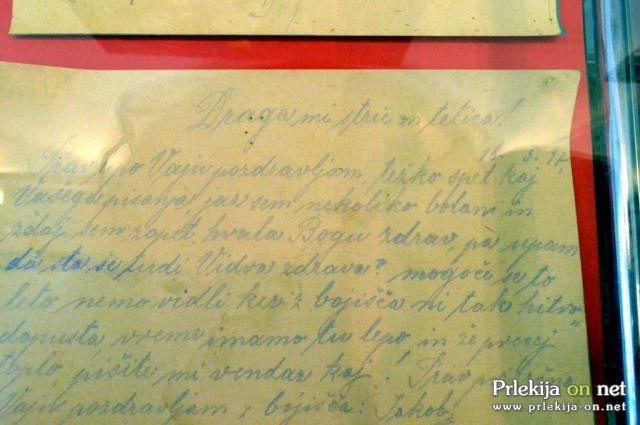 Draga mi stric in tetica!
Prav lepo Vaju pozdravljam, težko spet kaj
Vašega pisanja jaz sem nekoliko bolan in
zdaj sem zopet hvala Bogu zdrav, pa upam
da sta se tudi Vidva zdrava? mogoče se to
leto nemo vidli ker z bojišča ni tak hitro
dopusta, vreme imamo tu lepo in že precej
toplo, pišite mi vendar kaj! Prav
Vaju pozdravljam z bojišča: Jakob
Prlekija on net
www.prlekija-on.net